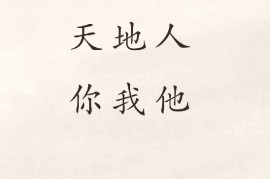 天地人
你我他